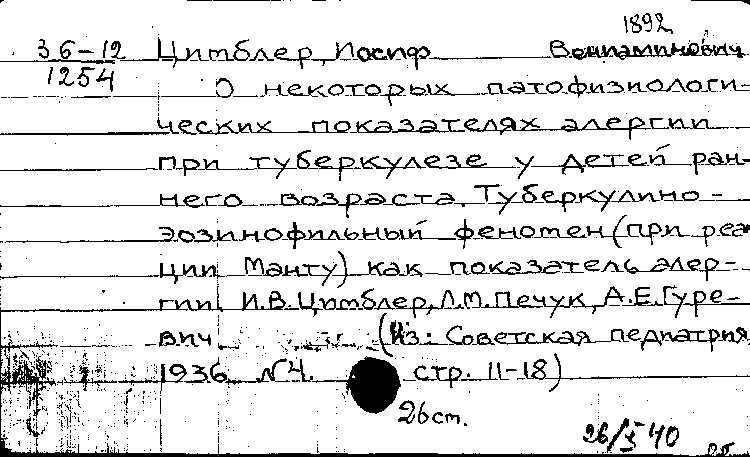 1892
36-12 Цимблер, Иосиф Вениаминович
1254
О некоторых патофизиологи-
ческих показателях алергии
при туберкулезе у детей ран-
него возраста. Туберкулино-
эозинофильный феномен (при реак
ции Манту) как показатель алер-
гии. И.В.Цимблер, Л.М.Печук, А.Е.Гуре-
вич. (Из: Советская педиатрия
1936 №4. стр. 11-18)
26 ст.
26/X 40